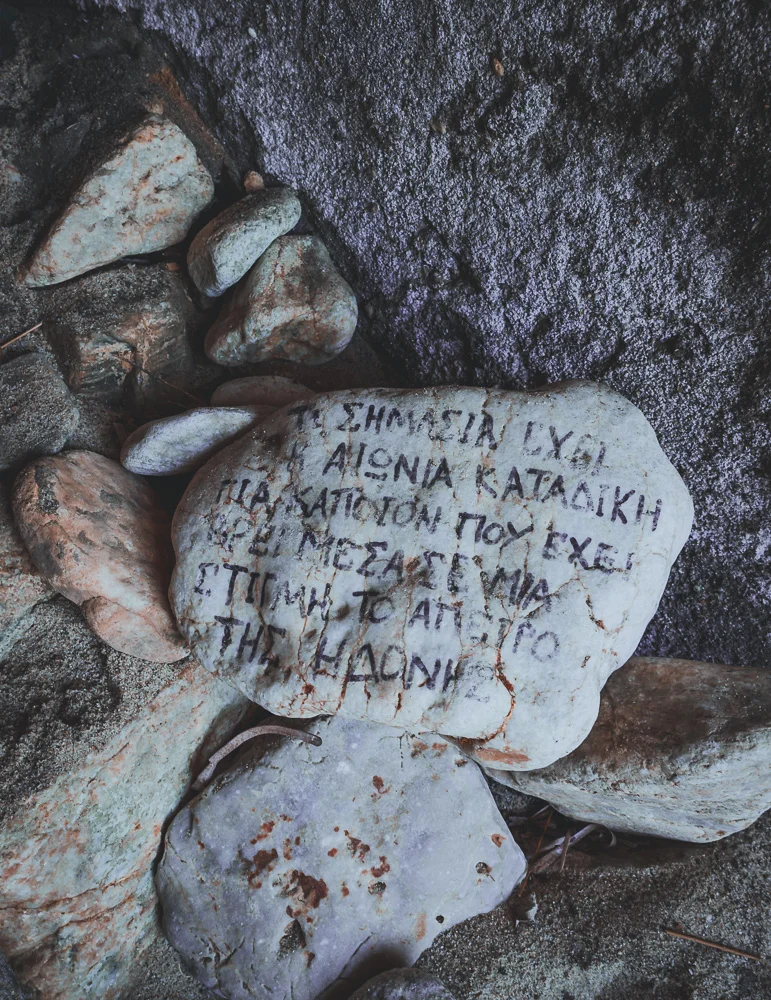 ΤΙ ΣΗΜΑΣΙΑ ΕΧΕΙ
Η ΑΙΩΝΙΑ ΚΑΤΑΔΙΚΗ
ΓΙΑ ΚΑΠΟΙΟΝ ΠΟΥ ΕΧΕΙ
ΒΡΕΙ ΜΕΣΑ ΣΕ ΜΙΑ
ΣΤΙΓΜΗ ΤΟ ΑΠΕΙΡΟ
ΤΗΣ ΗΔΟΝΗΣ